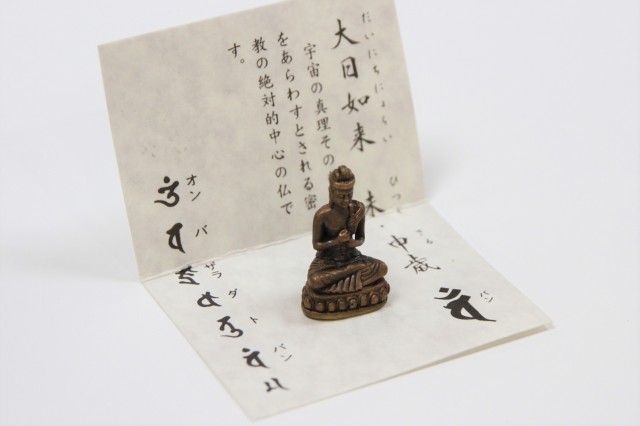 だいにちにょらい
大日如来
ひつ
未
さる
申歳
バン
宇宙の真理その
をあらわすとされる密
教の絶対的中心の仏で
す。
オン バ ザラ ダ ト バン